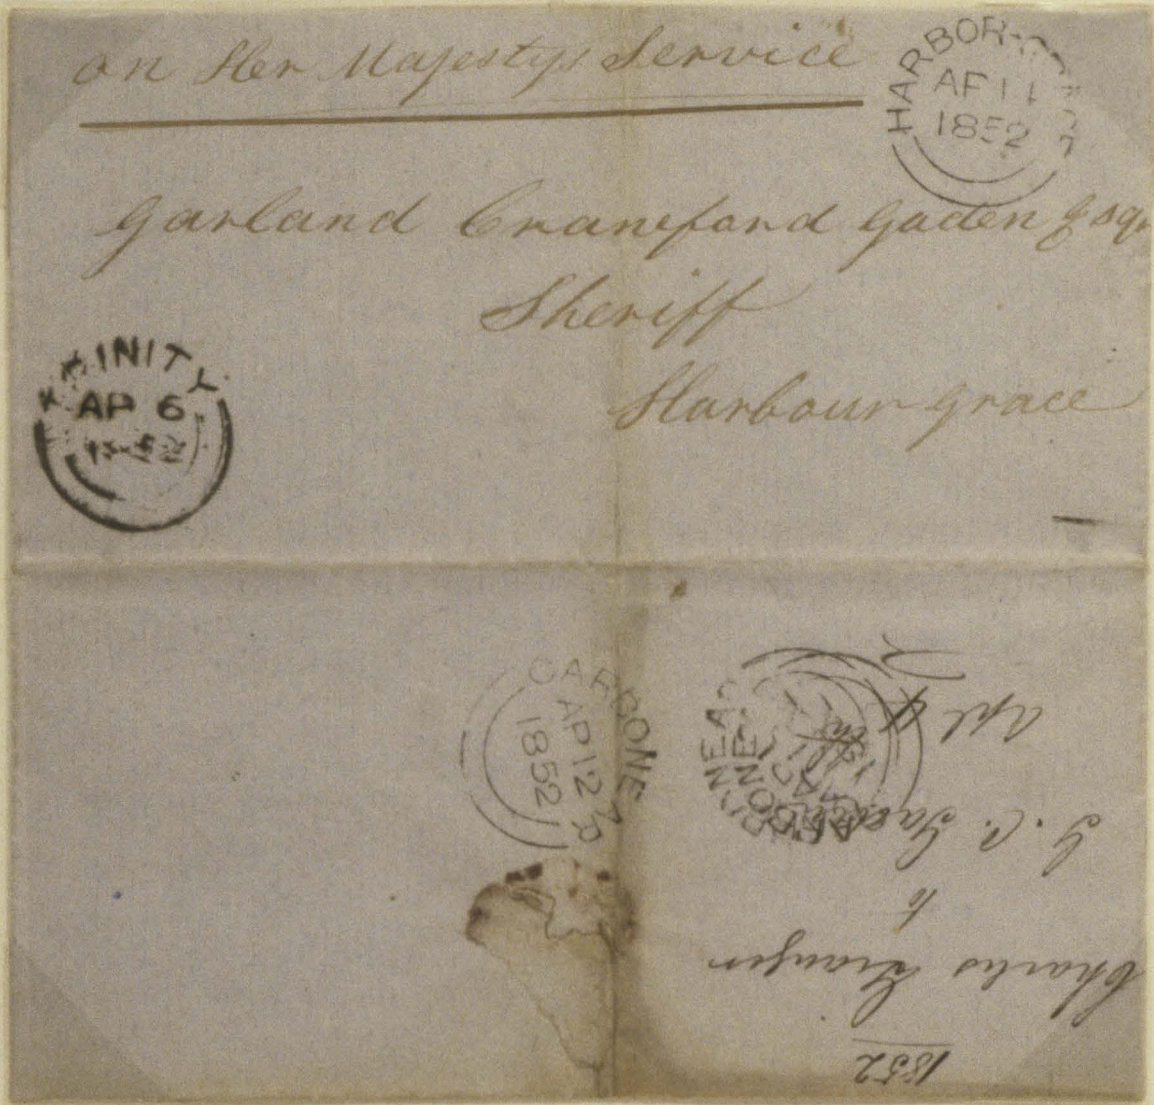 On Her Majestys Service
HARBOR
AP 11
1852
Garland Crawford Gaden Esqr
Sheriff
Harbour Grace
TRINITY
AP 6
1852
CARBONEAR
AP 12
1852
1852
Charles Granger
to
G. C. Gaden
Apl